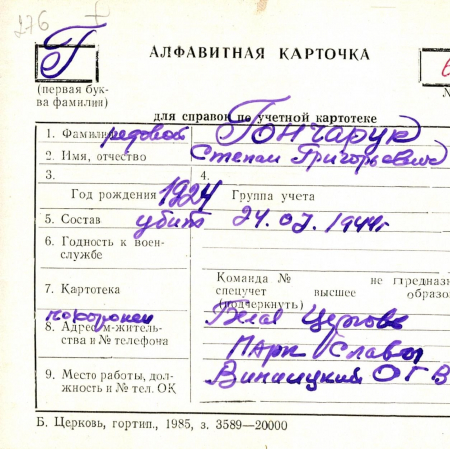 276
Г
АЛФАВИТНАЯ КАРТОЧКА
(первая бук-
ва фамилии)
для справок по учетной картотеке
1. Фамилия рядовой Гончарук
2. Имя, отчество Степан Григорьевич
3. 4.
Год рождения 1924 Группа учета
5. Состав убит 24.07.1944г
6. Годность к воен-
службе
Команда № не предназ
7. Картотека спецучет высшее образо
(подчеркнуть)
похоронен Белая Церковь
8. Адрес м-житель-
ства и № телефона Парк Славы
9. Место работы, дол- Винницкий ОГВ
жность и № тел. ОК
Б. Церковь, гортип., 1985, з. 3589—20000